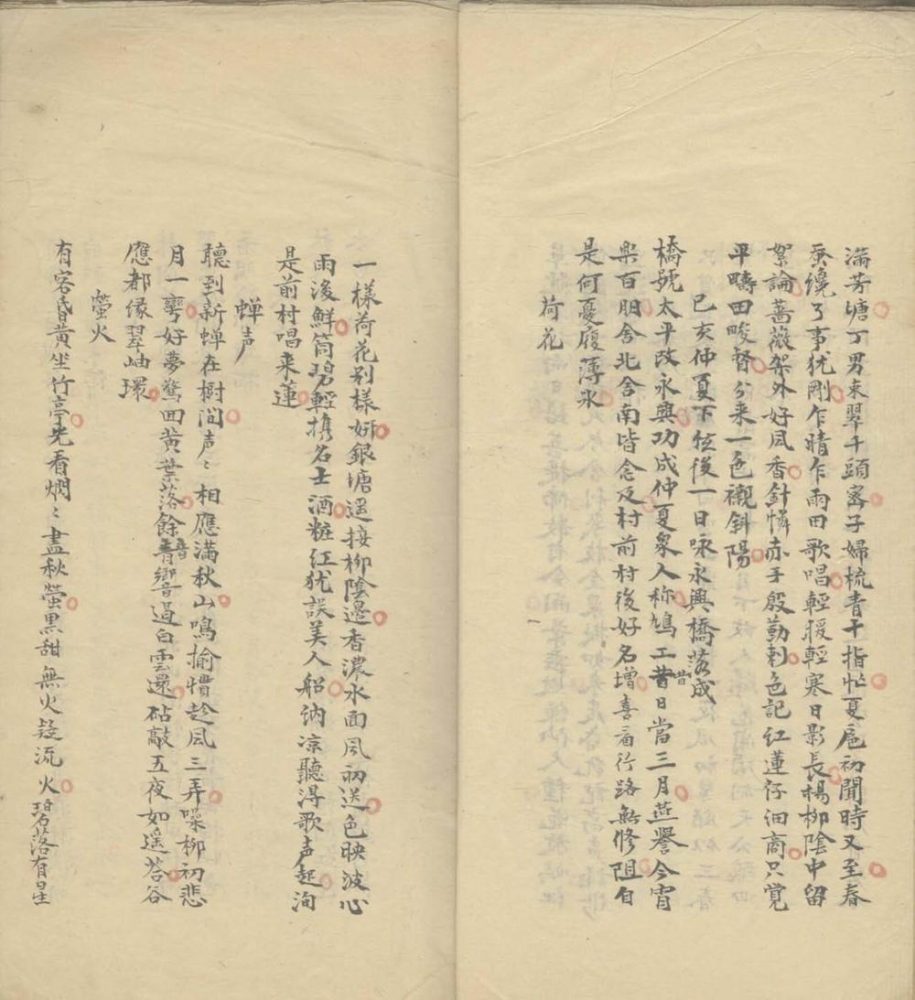 滿芳塘丁男束翠千頭密子婦梳青十指忙夏扈初聞時又至春
蚕纔了事犹剛乍晴乍雨田歌唱輕暖輕寒日影長楊柳陰中留
絮論蔷薇架外好風香針憐赤子殷勤刺色記红蓮仔細商只覚
平疇田畯督分来一色襯斜陽
己亥仲夏下弦後一日咏永興橋落成
橋號太平改永興功成仲夏衆人称鳩工昔昔日當三月燕譽今宵
樂百朋舍北舍南皆念及村前村後好名增喜看行路無修阻自
是何憂履薄氷
荷花
一樣荷花别樣妍銀塘遥接柳陰邊香濃水面風初送色映波心
雨後鮮筒碧輕携名士酒粧红犹誤美人船納凉聽得歌声起洵
是前村唱来蓮
蝉声
聽到新蝉在樹间声〻相應满秋山鳴揄慣趁風三弄噪柳初悲
月一彎好夢驚回黄葉落餘音響過白雲還砧敲五夜如遥荅谷
應都像翠岫環
螢火
有客昏黄坐竹亭先看熠〻盡秋螢黒甜無火疑流火碧落有星